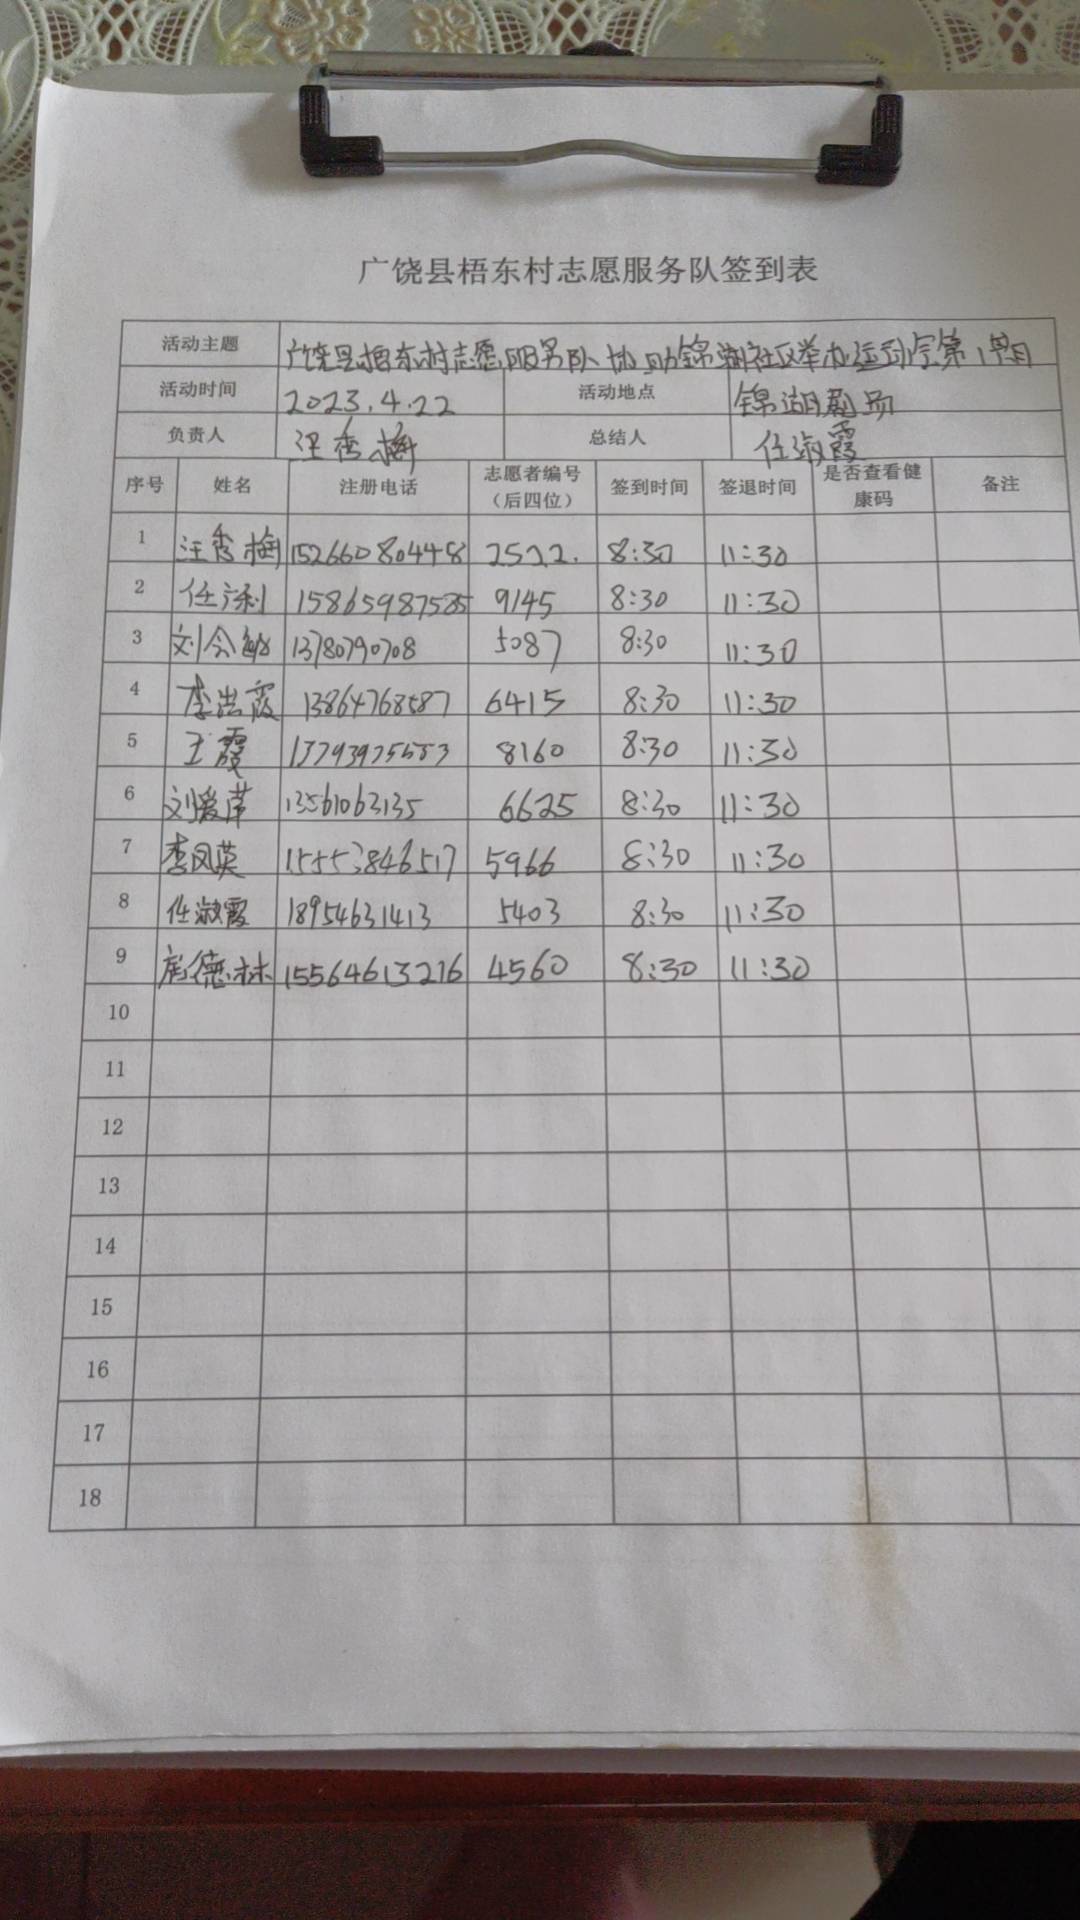 广饶县梧东村志愿服务队签到表
活动主题 广饶县梧东村志愿服务队协助锦湖社区举办运动会第1单日
活动时间 2023.4.22 活动地点 锦湖剧场
负责人 汪秀梅 总结人 任淑霞
序号 姓名 注册电话 志愿者编号（后四位） 签到时间 签退时间 是否查看健康码 备注
1 汪秀梅 152660804448 2522. 8:30 11:30
2 任 15865987585 9145 8:30 11:30
3 刘令敏 13780790708 5087 8:30 11:30
4 李洪霞 13864768587 6415 8:30 11:30
5 王霞 13793975583 8160 8:30 11:30
6 刘爱萍 13561063135 6625 8:30 11:30
7 李凤英 15553846517 5966 8:30 11:30
8 任淑霞 18954631413 5403 8:30 11:30
9 德林 15564613216 4560 8:30 11:30
10
11
12
13
14
15
16
17
18